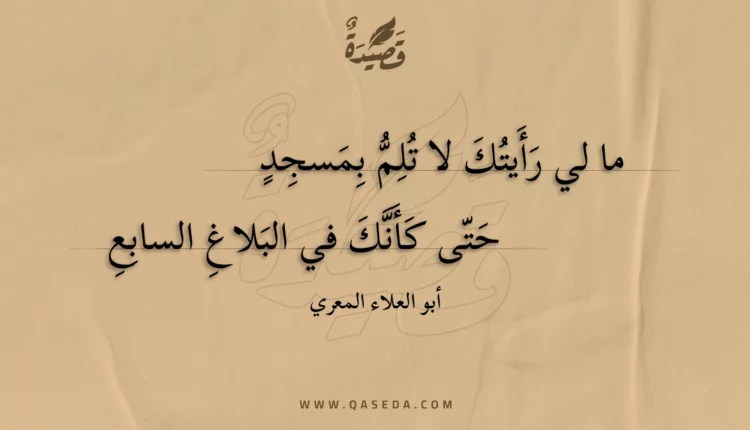 قَصِيْدَةٌ
ما لي رَأَيتُكَ لا تُلِمُّ بِمَسجِدٍ
حَتّى كَأَنَّكَ في البَلاغِ السابِعِ
أبو العلاء المعري
WWW.QASEDA.COM